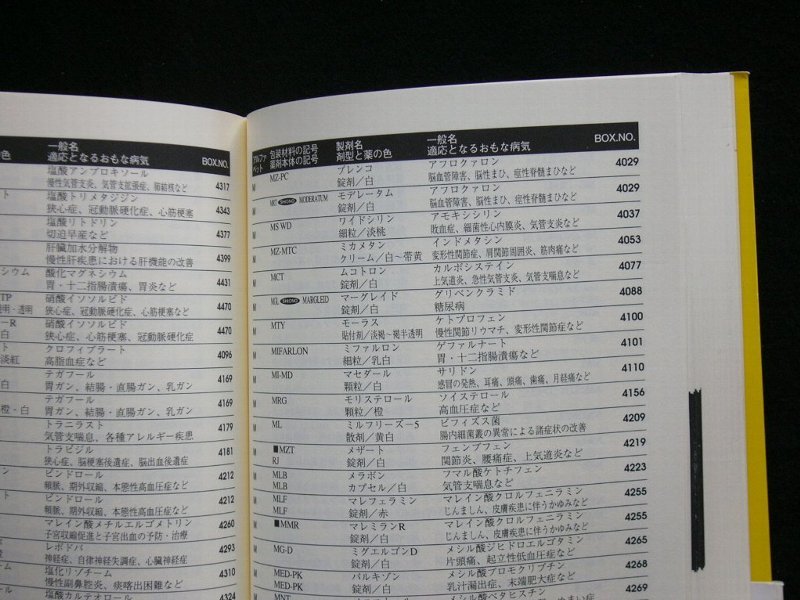 の色
一般名
適応となるおもな病気
BOX.NO.
塩酸アンブロキソール
慢性気管支炎、気管支拡張症、肺結核など
4317
ト
塩酸トリメタジジン
狭心症、冠動脈硬化症、心筋梗塞
4343
塩酸リトドリン
切迫早産など
4377
肝臓加水分解物
慢性肝疾患における肝機能の改善
4399
シウム
酸化マグネシウム
胃・十二指腸潰瘍、胃炎など
4431
TP
硝酸イソソルビド
明・透明
狭心症、冠動脈硬化症、心筋梗塞など
4470
ーR
硝酸イソソルビド
白
狭心症、冠動脈硬化症、心筋梗塞
4470
ト
クロフィブラート
淡紅
高脂血症など
4096
テガフール
白
胃ガン、結腸・直腸ガン、乳ガン
4169
テガフール
橙・白
胃ガン、結腸・直腸ガン、乳ガン
4169
トラニラスト
気管支喘息、各種アレルギー疾患
4179
トラピジル
狭心症、脳梗塞後遺症、脳出血後遺症
4181
ピンドロール
頻脈、期外収縮、本態性高血圧症など
4212
ピンドロール
頻脈、期外収縮、本態性高血圧症など
4212
マレイン酸メチルエルゴメトリン
子宮収縮促進と子宮出血の予防・治療
4260
レボドパ
神経症、自律神経失調症、心臓神経症
4293
塩化リゾチーム
慢性副鼻腔炎、痰喀出困難など
4310
塩酸カルテオロール
4324
アルファベット
包装材料の記号
薬剤本体の記号
製剤名
剤型と薬の色
一般名
適応となるおもな病気
BOX.NO.
M
MZ-PC
ブレンコ
錠剤/白
アフロクァロン
脳血管障害、脳性まひ、痙性脊髄まひなど
4029
M
MODERATUM
モデレータム
錠剤/白
アフロクァロン
脳血管障害、脳性まひ、痙性脊髄まひなど
4029
M
MS WD
ワイドシリン
細粒/淡桃
アモキシシリン
敗血症、細菌性心内膜炎、気管支炎など
4037
M
MZ-MTC
ミカメタン
クリーム/白〜帯黄
インドメタシン
変形性関節症、肩関節周囲炎、筋肉痛など
4053
M
MCT
ムコトロン
錠剤/白
カルボシステイン
上気道炎、急性気管支炎、気管支喘息など
4077
M
MARGLEID
マーグレイド
錠剤/白
グリベンクラミド
糖尿病
4088
M
MTY
モーラス
貼付剤/淡褐〜褐半透明
ケトプロフェン
慢性関節リウマチ、変形性関節症など
4100
M
MIFARLON
ミファルロン
細粒/乳白
ゲファルナート
胃・十二指腸潰瘍など
4101
M
MI-MD
マセダール
顆粒/白
サリドン
感冒の発熱、耳痛、頭痛、歯痛、月経痛など
4110
M
MRG
モリステロール
顆粒/橙
ソイステロール
高血圧症など
4156
M
ML
ミルフリーズ-S
散剤/黄白
ビフィズス菌
腸内細菌叢の異常による諸症状の改善
4209
M
■MZT
RJ
メザート
錠剤/白
フェンブフェン
関節炎、腰痛症、上気道炎など
4219
M
MLB
MLB
メラボン
カプセル/白
フマル酸ケトチフェン
気管支喘息など
4223
M
MLF
MLF
マレフェン
錠剤/赤
マレイン酸クロルフェニラミン
じんましん、皮膚疾患に伴うかゆみなど
4255
M
■MMR
マレミランR
錠剤/白
マレイン酸クロルフェニラミン
じんましん、皮膚疾患に伴うかゆみなど
4255
M
MG-D
ミグエルゴンD
錠剤/白
メシル酸ジヒドロエルゴタミン
片頭痛、起立性低血圧症など
4265
M
MED-PK
MED-PK
パルキゾン
錠剤/白
メシル酸ブロモクリプチン
乳汁漏出症、末端肥大症など
4268
MNT
メシル酸ベタヒスチン
4269